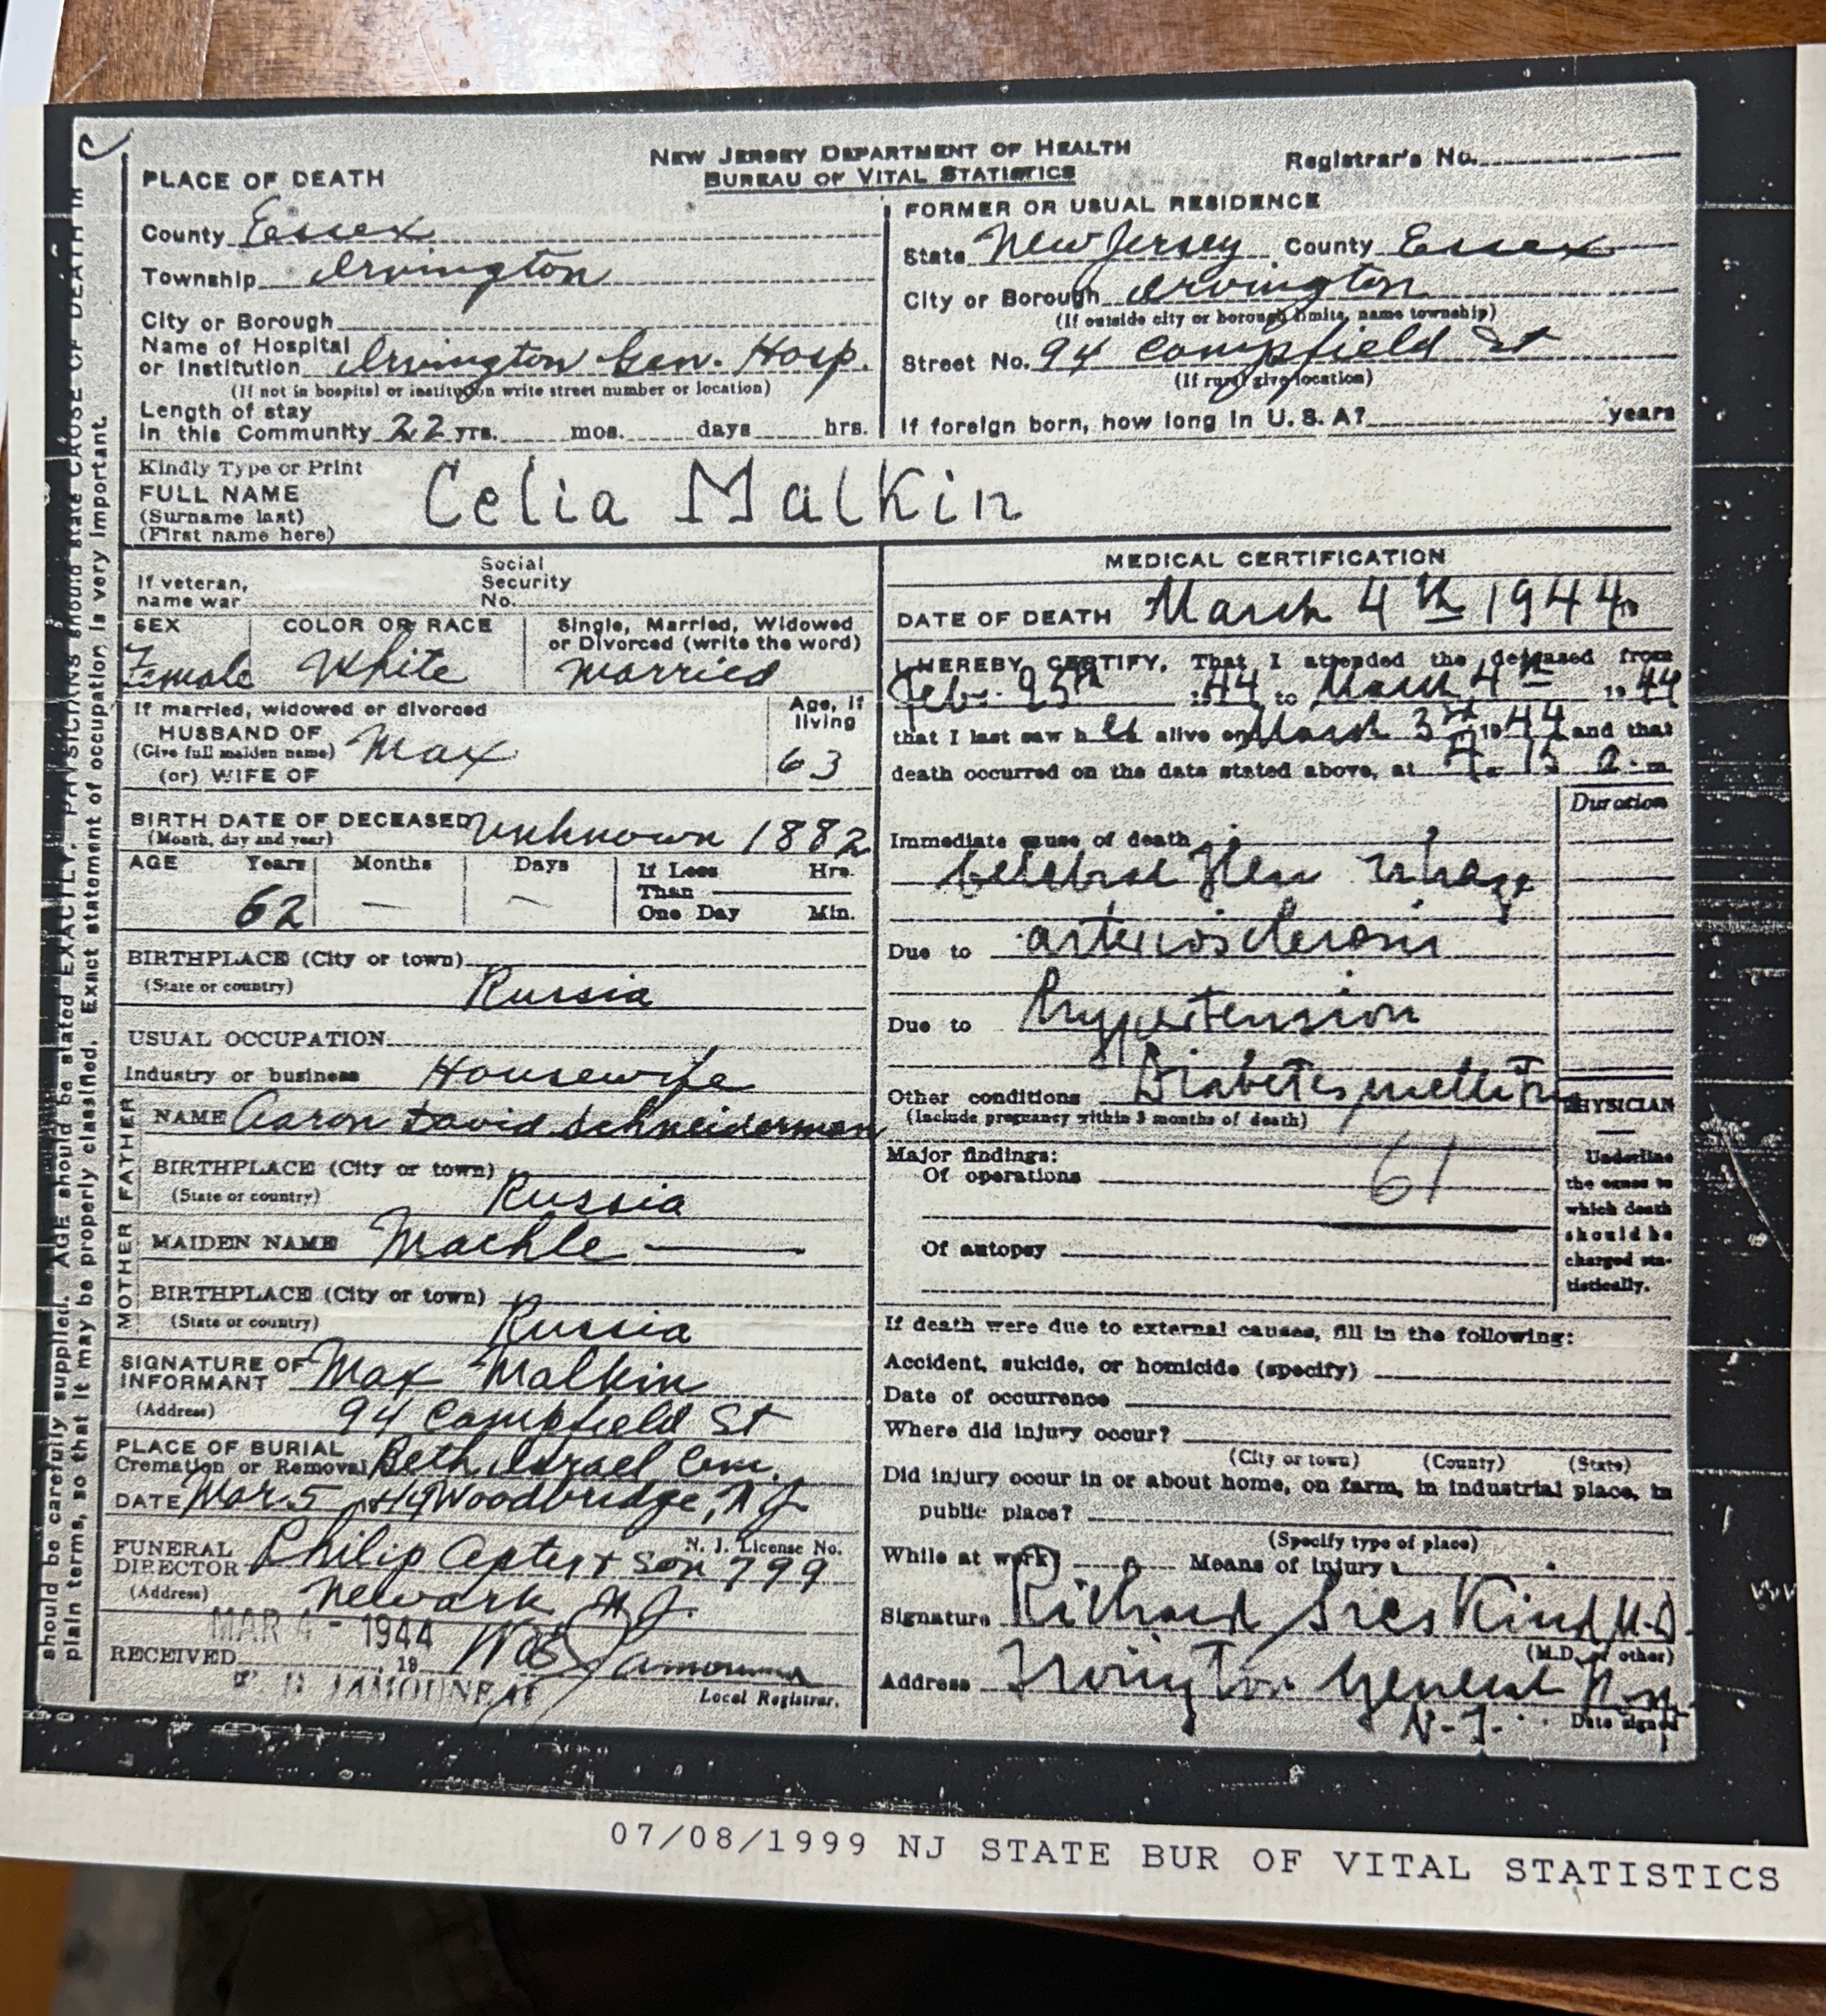 NEW JERSEY DEPARTMENT OF HEALTH
BUREAU OF VITAL STATISTICS
Registrar's No.
PLACE OF DEATH
County Essex
Township Irvington
City or Borough
Name of Hospital
or Institution Irvington Gen. Hosp.
(If not in hospital or institution write street number or location)
Length of stay
in this Community 22 yrs. mos. days hrs.
FORMER OR USUAL RESIDENCE
State New Jersey County Essex
City or Borough Irvington
(If outside city or borough limits, name township)
Street No. 94 Campfield St
(If rural give location)
If foreign born, how long in U. S. A? years
Kindly Type or Print
FULL NAME Celia Malkin
(Surname last)
(First name here)
If veteran,
name war
Social
Security
No.
SEX
Female
COLOR OR RACE
White
Single, Married, Widowed
or Divorced (write the word)
Married
If married, widowed or divorced
HUSBAND OF Max
(Give full maiden name)
(or) WIFE OF
Age, if
living
63
BIRTH DATE OF DECEASED Unknown 1882
(Month, day and year)
AGE Years Months Days If Less Hrs.
Than
One Day Min.
62 — —
BIRTHPLACE (City or town)
(State or country) Russia
USUAL OCCUPATION
Industry or business Housewife
FATHER
NAME Aaron David Schneiderman
BIRTHPLACE (City or town)
(State or country) Russia
MOTHER
MAIDEN NAME Machle —
BIRTHPLACE (City or town)
(State or country) Russia
SIGNATURE OF
INFORMANT Max Malkin
(Address) 94 Campfield St
PLACE OF BURIAL
Cremation or Removal Beth Israel Cem.
DATE Mar 5 1944 Woodbridge, N J
FUNERAL
DIRECTOR Philip Apter & Son 799
N. J. License No.
(Address) Newark N. J.
MAR 4 - 1944
RECEIVED 19
Local Registrar.
MEDICAL CERTIFICATION
DATE OF DEATH March 4th 1944 19
I HEREBY CERTIFY, That I attended the deceased from
Feb. 1944 to March 4th 1944
that I last saw h alive on March 3rd 1944 and that
death occurred on the date stated above, at 4:15 a. m.
Duration
Immediate cause of death
Cerebral Hemorrhage
Due to arteriosclerosis
Due to hypertension
Other conditions Diabetes mellitus
(Include pregnancy within 3 months of death)
Major findings:
Of operations 61
Of autopsy
PHYSICIAN
Underline
the cause to
which death
should be
charged sta-
tistically.
If death were due to external causes, fill in the following:
Accident, suicide, or homicide (specify)
Date of occurrence
Where did injury occur?
(City or town) (County) (State)
Did injury occur in or about home, on farm, in industrial place, in
public place?
(Specify type of place)
While at work Means of injury
Signature Richard M.D.
(M.D. or other)
Address Irvington General
N.J. Date signed
should be carefully supplied. AGE should be stated EXACTLY. PHYSICIANS should state CAUSE OF DEATH in
plain terms, so that it may be properly classified. Exact statement of occupation is very important.
07/08/1999 NJ STATE BUR OF VITAL STATISTICS